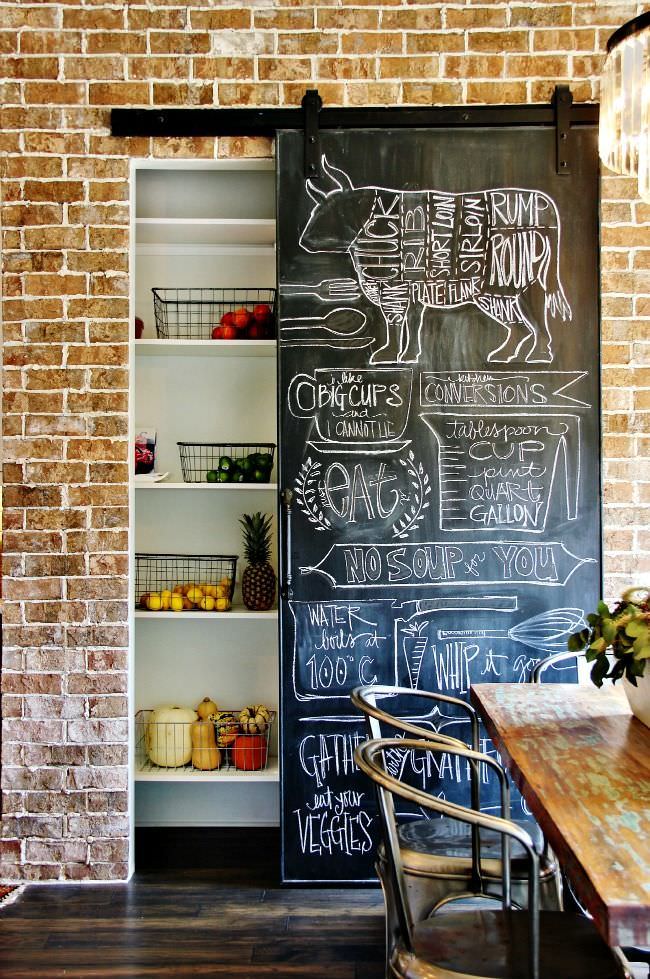 CHUCK
RIB
SHORT LOIN
SIRLOIN
RUMP
ROUND
SHANK
PLATE
FLANK
SHANK
i like
BIG CUPS
and
I CANNOT LIE
kitchen
CONVERSIONS
tablespoon
CUP
pint
QUART
GALLON
eat
NO SOUP for YOU
WATER
boils at
100°C
WHIP it go
GATHER
with
GRATE
eat your
VEGGIES